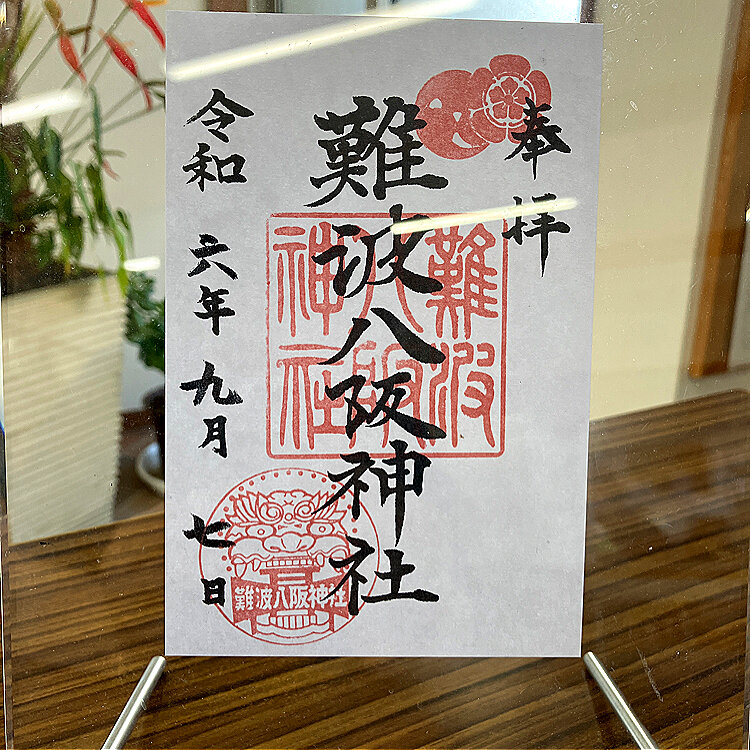 奉拝
難波八阪神社
難波八阪神社
令和六年九月七日
難波八阪神社